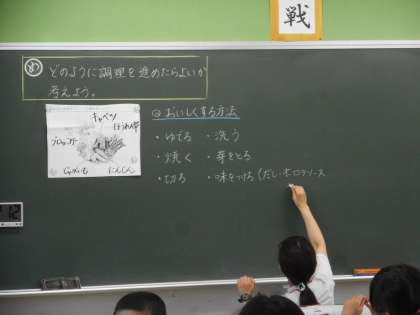 戦
め どのように調理を進めたらよいか
考えよう。
キャベツ
ほうれん草
ブロッコリー
じゃがいも
にんじん
おいしくする方法
・ゆでる ・洗う
・焼く ・芽をとる
・切る ・味をつける(だし・ホロテソース